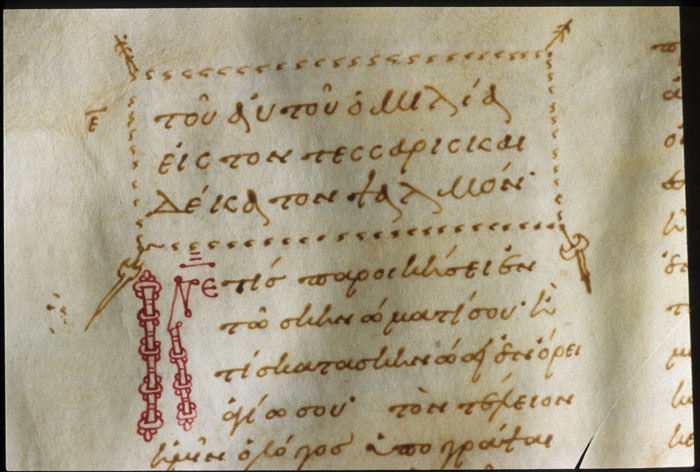 ε
τοῦ αὐτοῦ ὁμιλία
εἰς τὸν τεσσαρισκαι
δέκατον ψαλμόν·
Κε τίς παροικήσει ἐν
τῶ σκηνώματί σου· ἢ
τίς κατασκηνώσει ἐν ὄρει
ἁγίω σου· τὸν τέλειον
ἡμῖν ὁ λόγος ὑπογράψαι